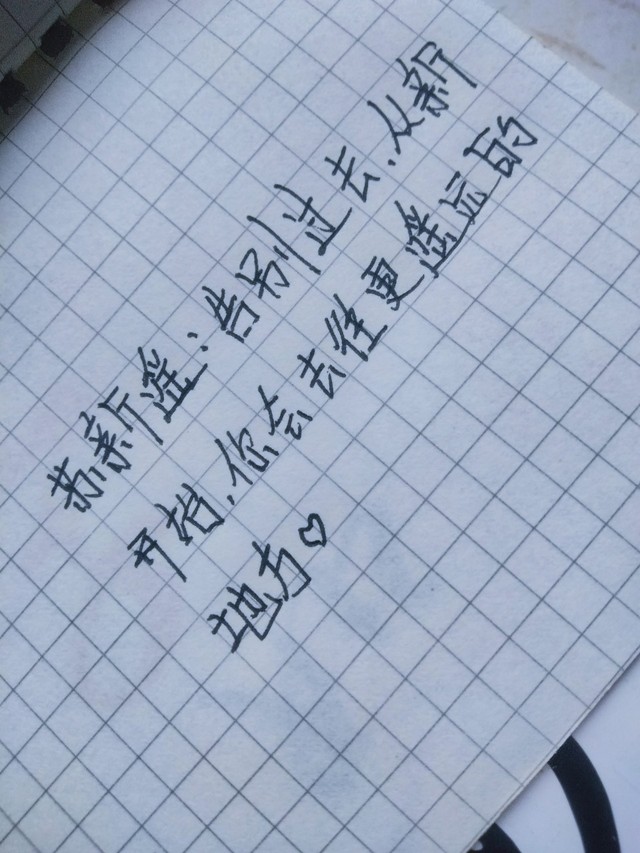 苏新遥：告别过去，从新
开始，你会去往更遥远的
地方♡